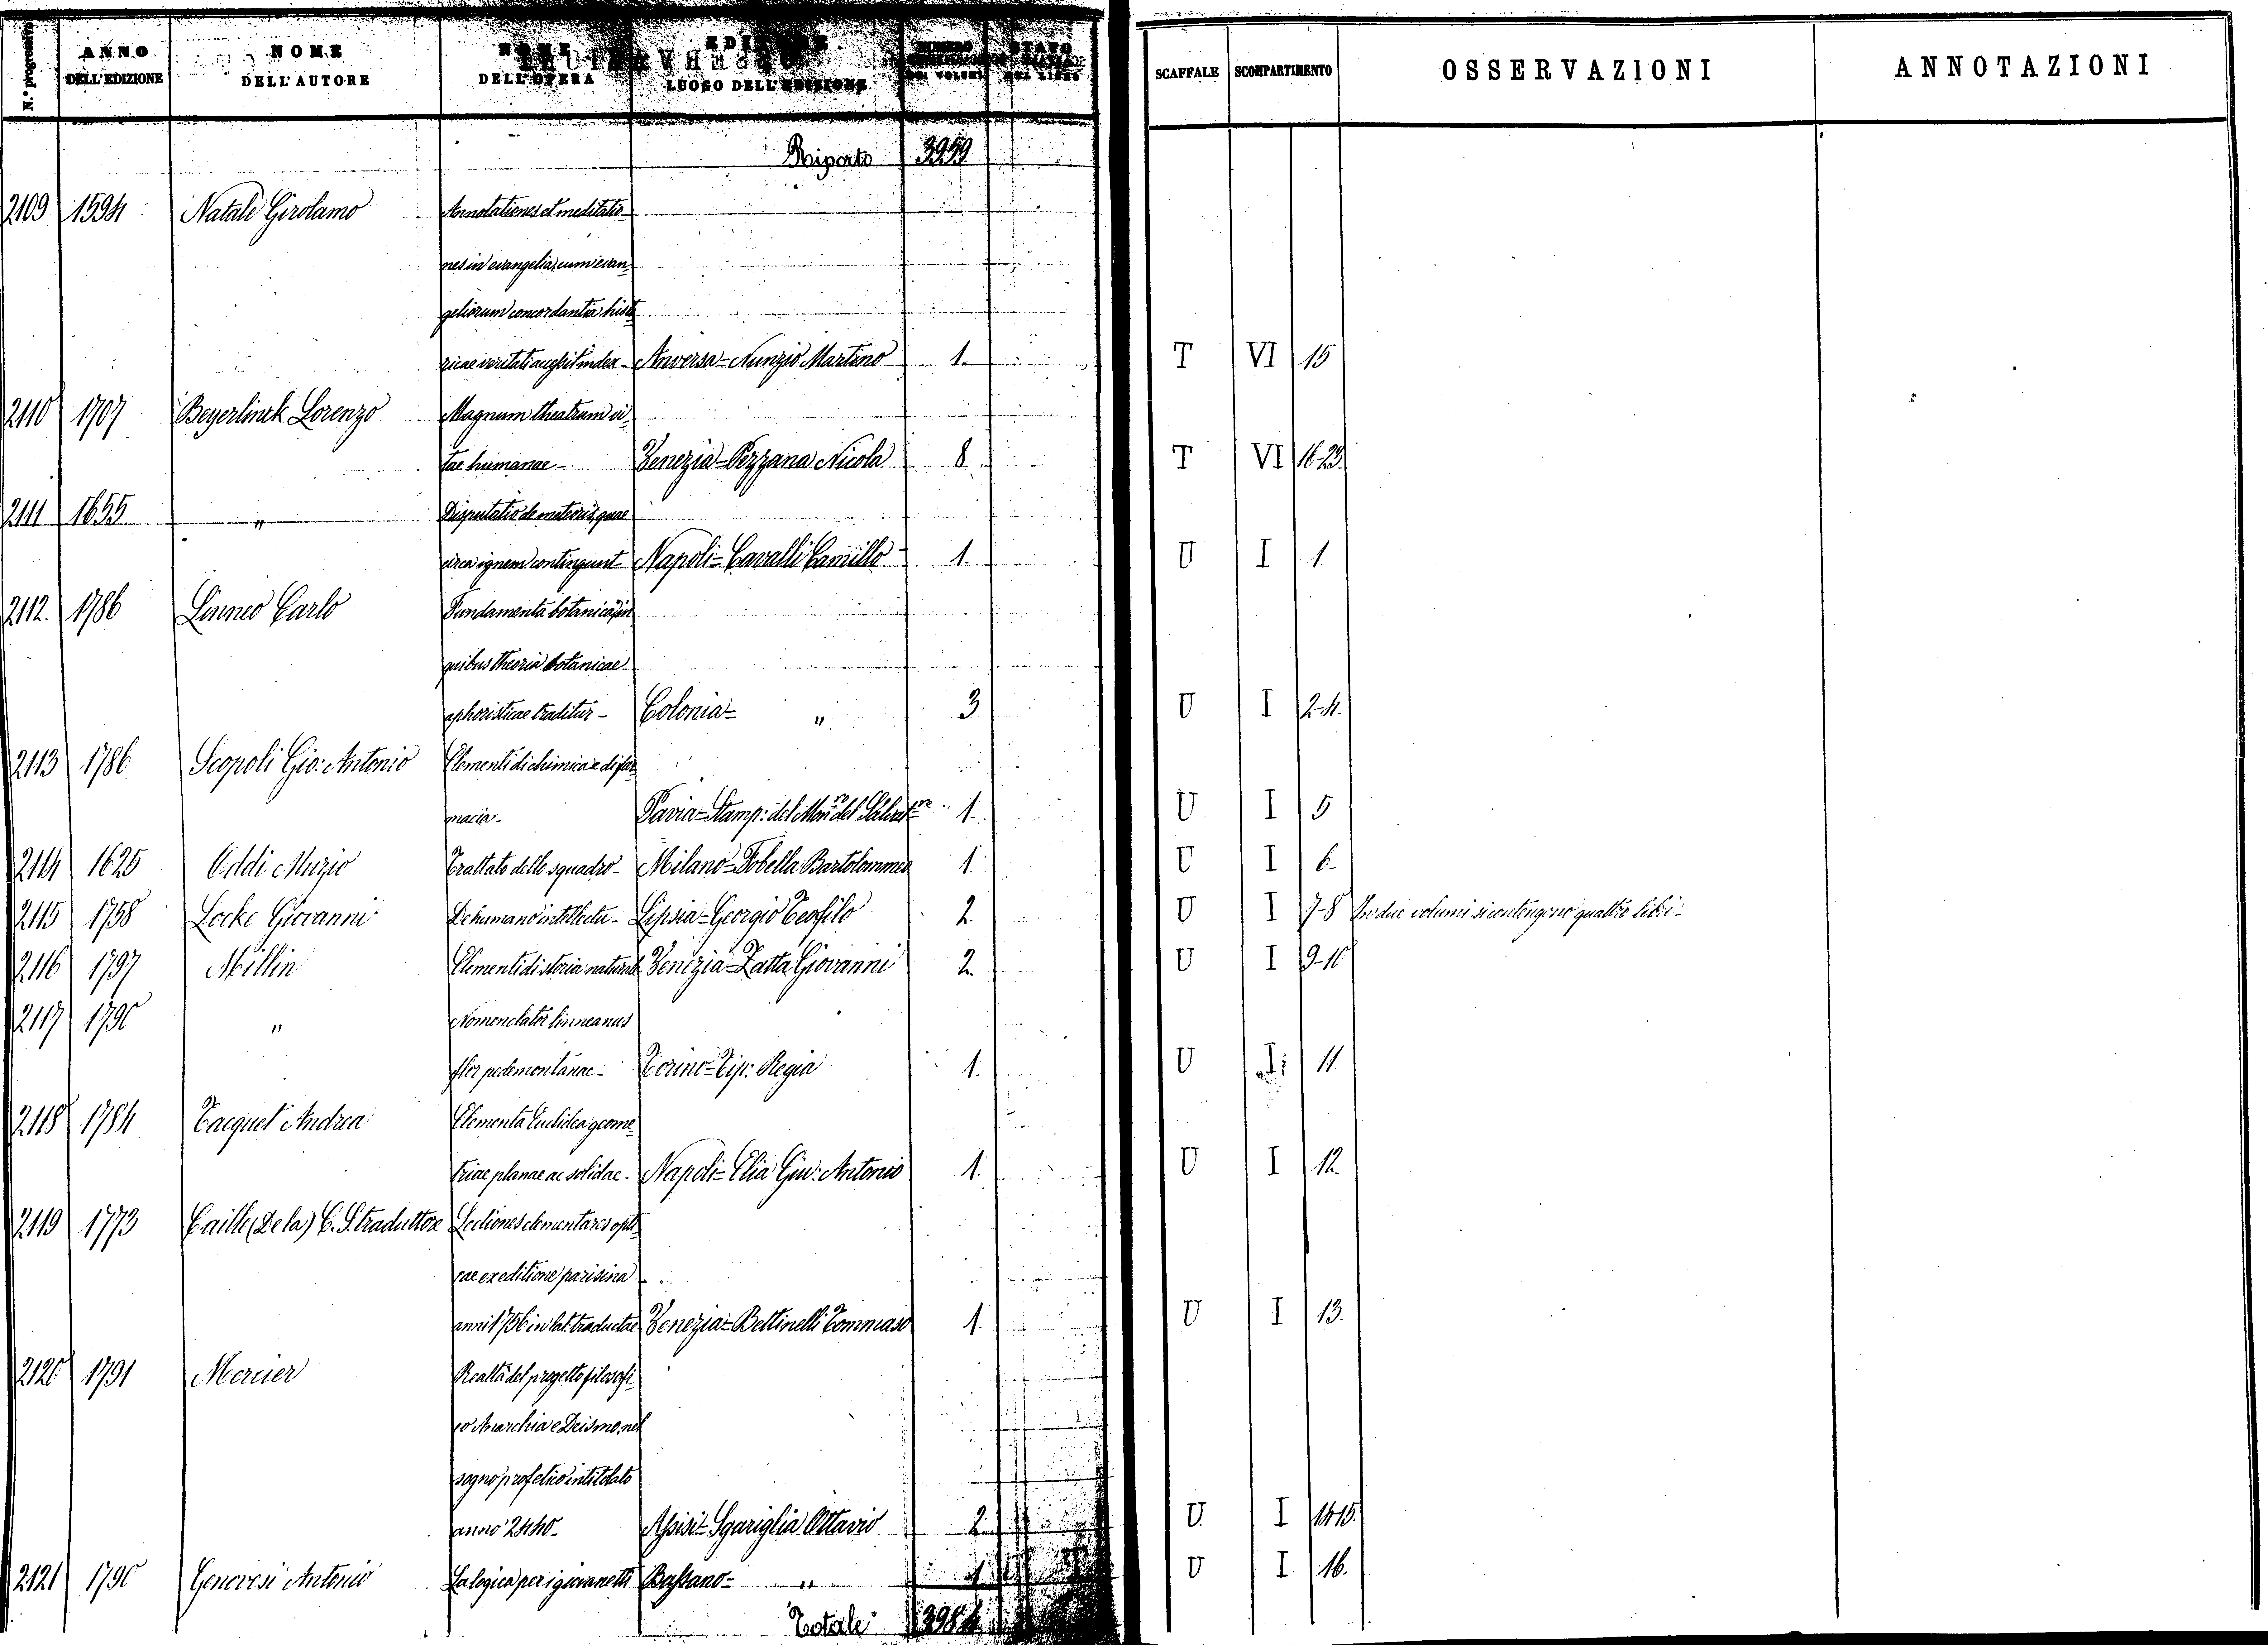 N.º progressivo ANNO DELL'EDIZIONE NOME DELL'AUTORE NOME DELL'OPERA EDITORE LUOGO DELL'EDIZIONE NUMERO DEI VOLUMI STATO DEL LIBRO SCAFFALE SCOMPARTIMENTO OSSERVAZIONI ANNOTAZIONI
Riporto 3959
2109 1594 Natale Girolamo Annotationes et meditatio-
nes in evangelia, cum evan-
geliorum concordantia histo-
ricae veritati accessit index - Anversa - Nunzio Martino 1. T VI 15
2110 1707 Beyerlinck Lorenzo Magnum theatrum vi-
tae humanae - Venezia - Pezzana Nicola 8. T VI 16-23.
2111 1655 " Disputatio de meteoris quae
circa ignem contingunt - Napoli - Cavalli Camillo - 1. U I 1.
2112. 1786 Linneo Carlo Fundamenta botanica, in
quibus theoria botanicae
aphoristicae traditur - Colonia - " 3 U I 2-4.
2113 1786 Scopoli Gio: Antonio Elementi di chimica e di far-
macia - Pavia - Stamp: del Mon.ro del Salvat.re 1. U I 5
2114 1625 Oddi Muzio Trattato dello squadro - Milano - Fobella Bartolommeo 1. U I 6.
2115 1758 Locke Giovanni De humano intellectu - Lipsia - Georgio Teofilo 2. U I 7-8 In due volumi si contengono quattro libri -
2116 1797 Millin Elementi di storia naturale Venezia - Zatta Giovanni 2. U I 9-10
2117 1790 " Nomenclator linneanus
flor pedemontanae - Torino - Tip: Regia 1. U I 11.
2118 1784 Tacquet Andrea Elementa Euclidea geome-
triae planae ac solidae - Napoli - Elia Giu: Antonio 1. U I 12.
2119 1773 Caille (De la) C. S. traduttore Lectiones elementares opti-
cae ex editione parisina
anni 1756 in lat. traductae Venezia - Bettinelli Tommaso 1. U I 13.
2120 1791 Mercier Realtà del progetto filosofi-
co Anarchia e Deismo, nel
sogno profetico intitolato
anno 2440 - Assisi - Sgariglia Ottavio 2. U I 14-15.
2121 1790 Genovesi Antonio La logica per i giovanetti Bassano - " 1 U I 16.
Totale 3984